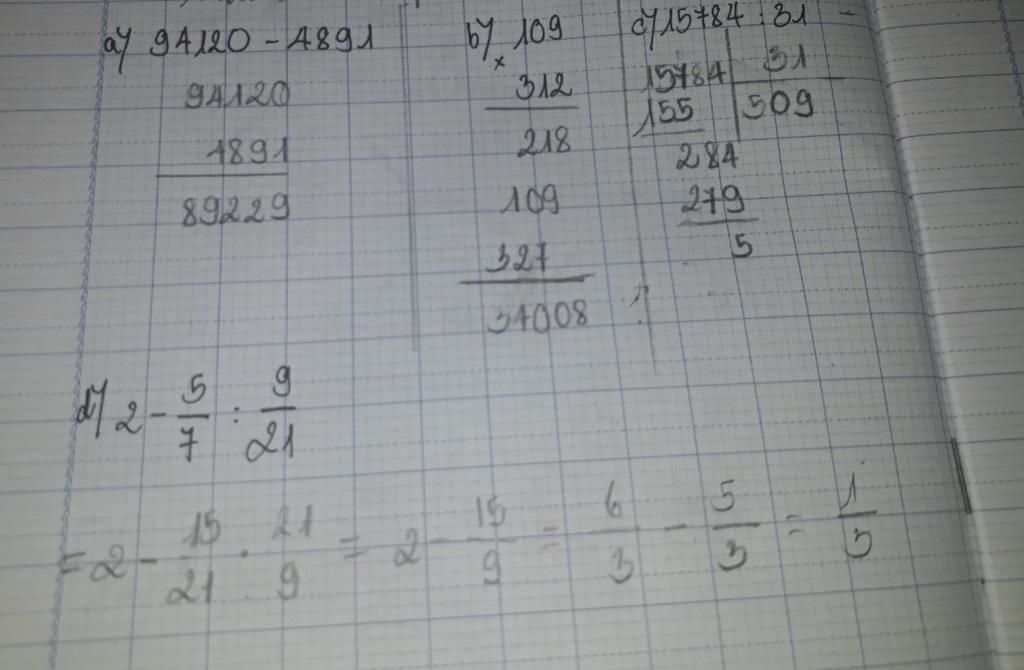 a) 94120 - 4891
94120
4891
89229
b) 109
x
312
218
109
327
34008
c) 15784 : 31
15784 | 31
155 | 509
284
279
5
d) 2 - 5/7 : 9/21
= 2 - 15/21 . 21/9 = 2 - 15/9 = 6/3 - 5/3 = 1/3